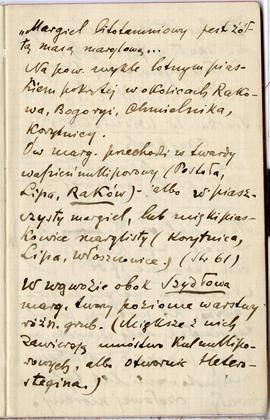 „Margiel litotamniowy jest żół-
tą masą marglową...
Na pow. wykle lotnym pias-
kiem pokrytej w okolicach Rako-
wa, Bogoryi, Chmielnika,
Korytnicy.
Ów marg. przechodzi w twardy
wapień nulliporowy (Posłoła,
Lipa, Raków) - albo w piasz-
czysty margiel, lub miękki pias-
kowiec marglisty (Korytnica,
Lipa, Włoszczowice.) (Str 61)
W wąwozie obok Szydłowa
marg. tworzy poziome warstwy
różn. grub. (Miększe z nich
zawierają mnóstwo kul nullipo-
rowych, albo otwornic Hetero-
stegina.)